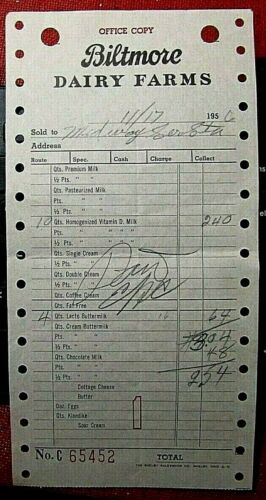 OFFICE COPY
Biltmore
DAIRY FARMS
11/17 1956
Sold to Midway Ser Sta
Address
Route Spec. Cash Charge Collect
Qts. Premium Milk
½ Pts. " "
Qts. Pasteurized Milk
½ Pts. " "
10 Qts. Homogenized Vitamin D. Milk 240
½ Pts. " " " "
Qts. Single Cream
½ Pts. " "
Qts. Double Cream
½ Pts. " "
Qts. Coffee Cream
Qts. Fat Free
4 Qts. Lacto Buttermilk 16 64
Qts. Cream Buttermilk 304
½ Pts. " " 48
Qts. Chocolate Milk 254
½ Pts. " "
Cottage Cheese
Butter
Doz. Eggs
Qts. Klondike 1
Sour Cream
No. C 65452 TOTAL